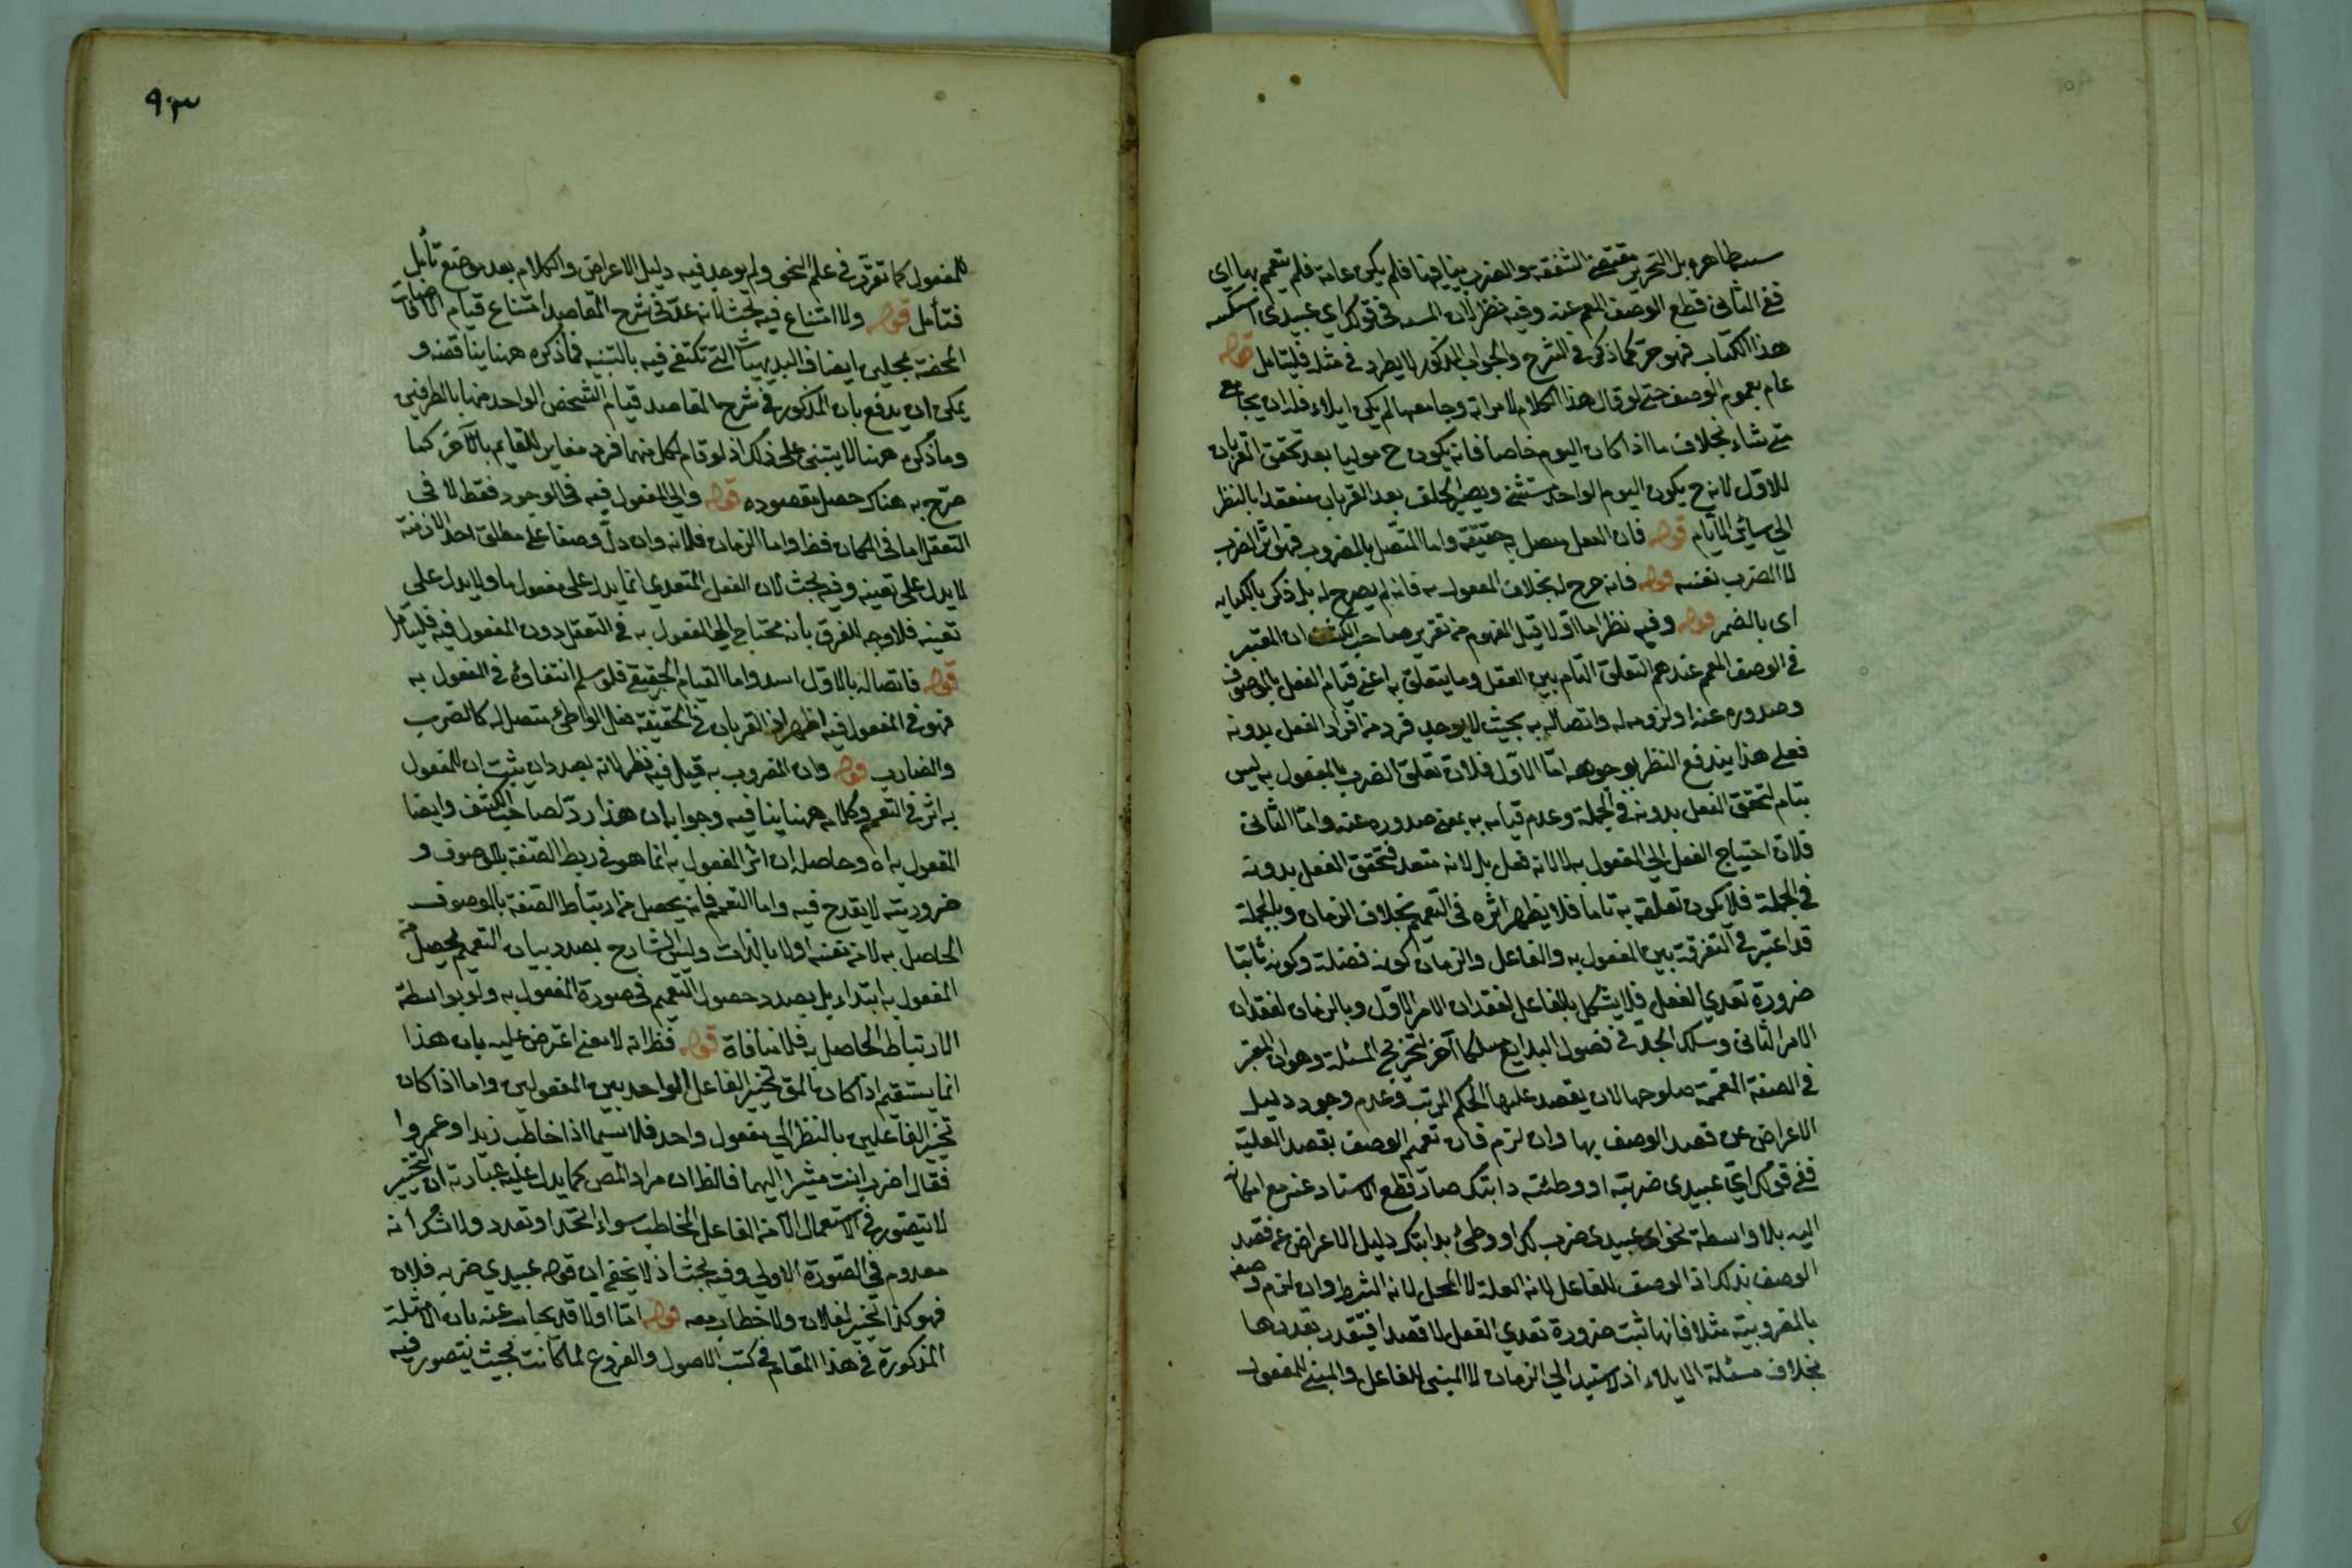 بل التحرير يقتضي الشفقة والضرب ينافيها فلم يكن علة فلم يتعمم بها اي
ففي الثاني قطع الوصف المعمم عنه وفيه نظر لان المسند في قولك اي عبيدي اسكنته
هذا الكتاب فهو حر كما ذكر في الشرح والجواب المذكور لا يطرد في مثله فليتامل قوله
عام بعموم الوصف حتى لو قال هذا الكلام لامراته وجامعها لم يكن ايلاء فله ان يجامع
متى شاء بخلاف ما اذا كان اليوم خاصا فانه يكون ح موليا بعد تحقق القربان
للاول لانه ح يكون اليوم الواحد مستثنى ويصير الحلف بعد القربان منعقدا بالنظر
الي سائر الايام قوله فان الفعل متصل به حقيقة واما المتصل بالمضروب فهو اثر الضرب
لا الضرب نفسه قوله فانه صرح له بخلاف المفعول به فانه لم يصرح له بل ذكر بالكنايه
اى بالضمير قوله وفيه نظر اما اولا قيل المفهوم من تقرير صاحب الكشف ان المعتبر
في الوصف المعمم عندهم التعلق التام بين الفعل وما يتعلق به اعني قيام الفعل بالموصوف
وصدوره عنه او لزومه له واتصاله به بحيث لا يوجد فرد من افراد الفعل بدونه
فعلى هذا يندفع النظر بوجوهه امّا الاوّل فلان تعلق الضرب بالمفعول به ليس
بتام لتحقق الفعل بدونه في الجملة وعدم قيامه به بمعنى صدوره عنه وامّا الثانى
فلان احتياج الفعل الي المفعول به لا لانه فعل بل لانه متعد فتحقق الفعل بدونه
في الجملة فلا يكون تعلقه به تاما فلا يظهر اثره في التعميم بخلاف الزمان وبالجملة
قد اعتبر في التفرقة بين المفعول به والفاعل والزمان كونه فضلة وكونه ثابتا
ضرورة تعدي الفعل فلا يشكل بالفاعل لفقدان الامر الاول وبالزمان لفقدان
الامر الثاني وسلك الجد في فصول البدايع مسلكا آخر لتخريج المسئلة وهو ان المعتبر
في الصفة المعممة صلوحها لان يقصد عليها الحكم المرتب وعدم وجود دليل
الاعراض عن قصد الوصف بها وان لزم فان تعميم الوصف بقصد العلية
ففي قولك اي عبيدى ضربته او وطئته دابتك صار قطع الاسناد عنه مع امكانه
اليه بلا واسطة نحو اى عبيدى ضرب لك او وطئ بدابتك دليل الاعراض عن قصد
الوصف بذلك اذ الوصف للفاعل لانه العلة لا المحل لانه الشرط وان لزم وصفه
بالمضروبية مثلا فانها ثبت ضرورة تعدي الفعل لا قصدا فيتقدر بقدرها
بخلاف مسئلة الايلاء اذ لا سيد الي الزمان لا المبني للفاعل والمبني للمفعول
٩٣
للمفعول كما تقرّر في علم النحو ولم يوجد فيه دليل الاعراض والكلام بعد موضع تأمل
فتأمل قوله ولا امتناع فيه بحث لانه عدّ في شرح المقاصد امتناع قيام الاضافات
المختصة بمحلين ايضا من البديهيات التى تكتفى فيه بالتنبيه فما ذكره ههنا يناقضه و
يمكن ان يدفع بان المذكور في شرح المقاصد قيام الشخص الواحد منها بالطرفين
وما ذكره ههنا لا يبتنى على ذلك اذ لو قام لكل منهما فرد مغاير للقايم بالآخر كما
صرّح به هناك حصل مقصوده قوله والى المفعول فيه في الوجود فقط لا في
التعقل اما في المكان فظ واما الزمان فلانه وان دلّ وصفا على مطلق احد الازمنة
لا يدل على تعينه وفيه بحث لان الفعل المتعدي انما يدل على مفعول ما ولا يدل على
تعينه فلا وجه للفرق بانه محتاج الي المفعول به في التعقل دون المفعول فيه فليتامل
قوله فاتصاله بالاول اسد واما القيام الحقيقي فلو سلم انتفاؤه في المفعول به
فهو في المفعول فيه اظهر اذ القربان في الحقيقة فعل الواطئ متصل له كالضرب
والضارب قوله وان المضروب به قيل فيه نظر لانه بصدد ان يثبت ان للمفعول
به اثر في التعميم وكلامه ههنا ينافيه وجوابه ان هذا ردّ لصاحب الكشف وايضا
المفعول به اه وحاصله ان اثر المفعول به انما هو في ربط الصّفة بالموصوف و
ضروريته لا يقدح فيه واما التعميم فانه يحصل من ارتباط الصّفة بالموصوف
الحاصل به لا منه نفسه اولا بالذات وليس الشارح بصدد بيان التعميم يحصل من
المفعول به ابتداء بل بصدد حصول التعميم في صورة المفعول به ولو بواسطة
الارتباط الحاصل به فلا منافاة قوله فظ انه لا معنى اعترض عليه بان هذا
انما يستقيم اذا كان المق تخيير الفاعل الواحد بين المفعولين واما اذا كان
تخيير الفاعلين بالنظر الي مفعول واحد فلا سيما اذا خاطب زيدا وعمروا
فقال اضرب انت مشيرا اليهما فالظ ان مراد المص كما يدل عليه عبارته ان التخيير
لا يتصور في الاستعمال الا من الفاعل المخاطب سواء اتحد او تعدد ولا شك انه
معدوم في الصّورة الاولي وفيه بحث اذ لا يخفى ان قوله عبيدي ضربه فلان
فهو كذا تخيير لفلان ولا خطاب معه قوله امّا اولا قد يجاب عنه بان الامثلة
المذكورة في هذا المقام في كتب الاصول والفروع لما كانت بحيث يتصور فيه